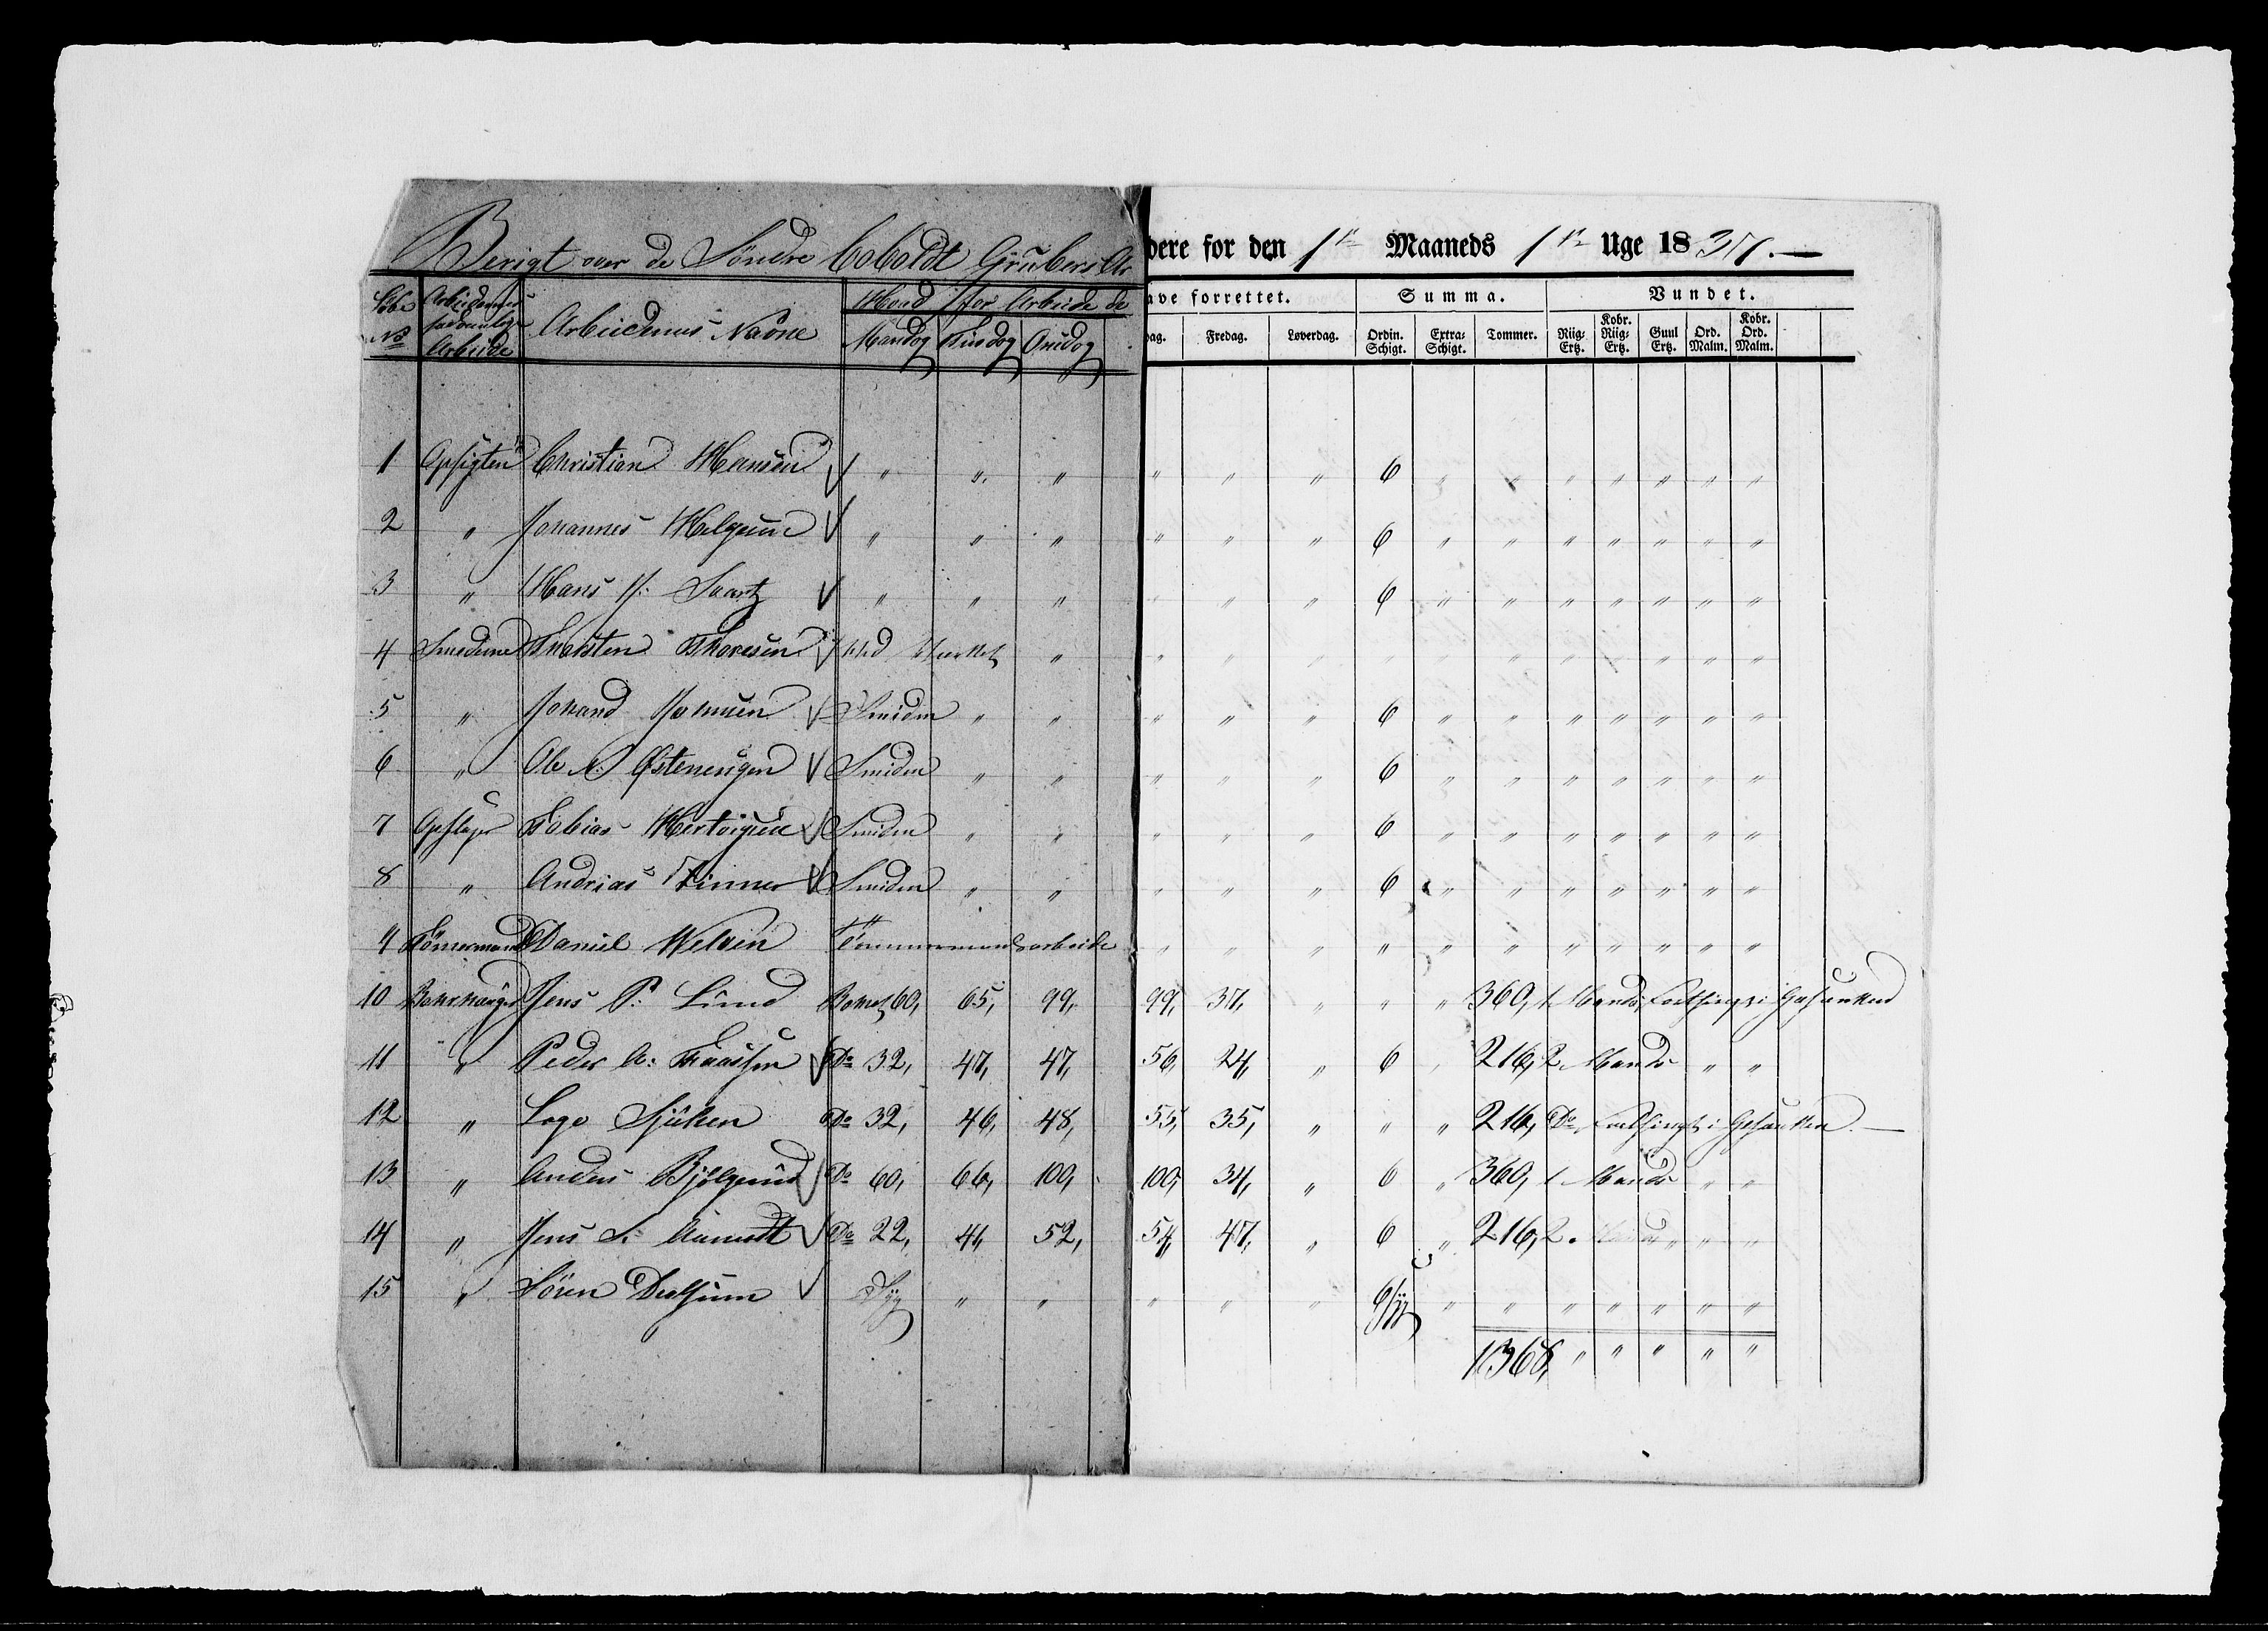 Berigt over de Söndre Coboldt Grubers Ar dere for den 1te Maaneds 1te Uge 1837.
Løbe No Arbeidernes sædvanlige Arbeide Arbeidernes Navne Hvad for Arbeide de ave forrettet. Summa. Vundet.
Mandag Tirsdag Onsdag dag. Fredag. Løverdag. Ordin. Schigt. Extra-Schigt. Tommer. Riig-Ertz. Kobr. Riig-Ertz. Guul Ertz. Ord. Malm. Kobr. Ord. Malm.
1 Opsigten Christian Hansen √ " " " " " " 6 " " " " " " "
2 " Johannes Helgesen √ " " " " " " 6 " " " " " " "
3 " Hans H: Svartz √ " " " " " " 6 " " " " " " "
4 Smedene Thorsten Thoresen √ Ved Værket " " " " " " " " " " " "
5 " Johand Johnsen √ Smiden " " " " " 6 " " " " " " "
6 " Ole N: Østenengen √ Smiden " " " " " 6 " " " " " " "
7 Opslager Tobias Hertvigsen √ Smiden " " " " " 6 " " " " " " "
8 " Andrias Finner √ Smiden " " " " " 6 " " " " " " "
9 Tömermand Daniel Welvin Tømmermandsarbeide " " " " " " " " " " "
10 Borhauger Jens P: Lund Boret 60, 65, 99, 99, 37, " " " 360, 1 Mands, i Gesenken
11 " Peder A: Faassen √ Do 32, 47, 47, 56, 24, " 6 " 216, 2 Mands " "
12 " Lage Do 32, 46, 48, 55, 35, " " " 216, Do i Gesenken
13 " Anders Bjölgerud √ Do 60, 66, 100, 100, 34, " 6 " 360, 1 Mands " "
14 " Jens S: √ Do 22, 41, 52, 54, 47, " 6 " 216, 2 Mands " " "
15 " Sören √ Syg " " " " " 6/syg " " " " " " "
1368, " " " " "